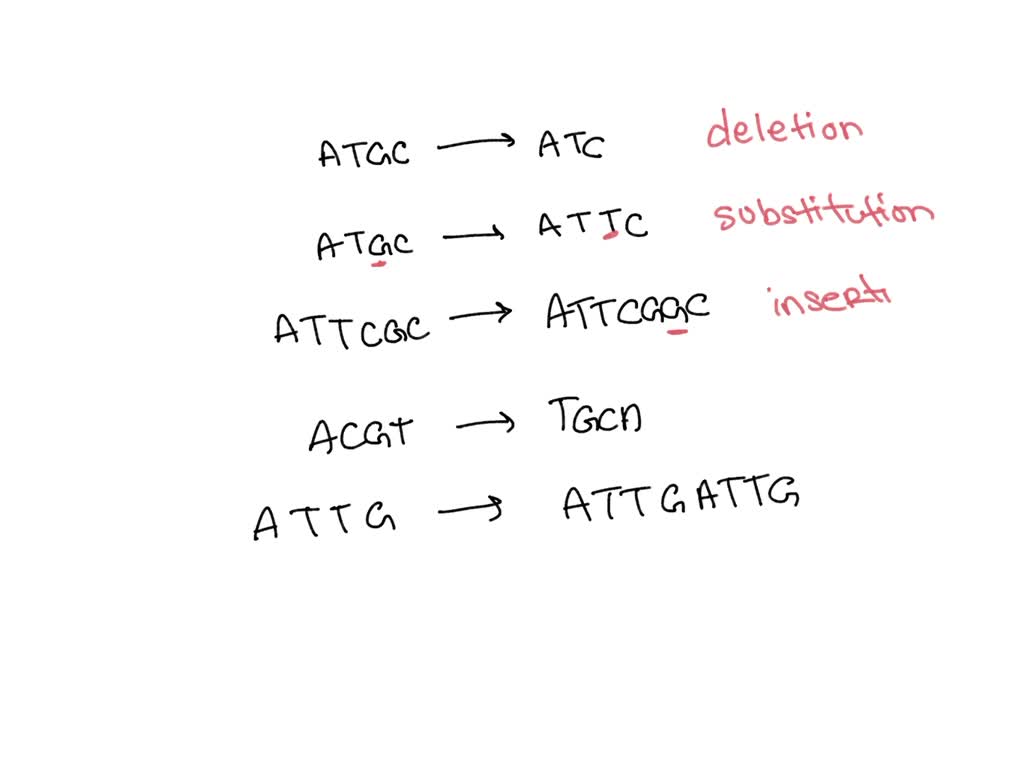 ATGC → ATC deletion
ATGC → ATTC substitution
ATTCGC → ATTCGGC inserti
ACGT → TGCA
ATTG → ATTGATTG